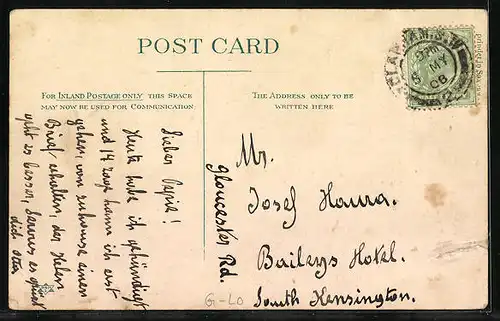 POST CARD
FOR INLAND POSTAGE ONLY THIS SPACE
MAY NOW BE USED FOR COMMUNICATION
THE ADDRESS ONLY TO BE
WRITTEN HERE
Lieber Pepie!
Heute habe ich gekündigt
und 14 Tage kann ich erst
gehen, von zuhause einen
Brief erhalten, der Helen
geht es besser,
dich
Mr.
Josef Houra.
Baileys Hotel.
Gloucester Rd.
South Kensington.
G-LO
MY
06